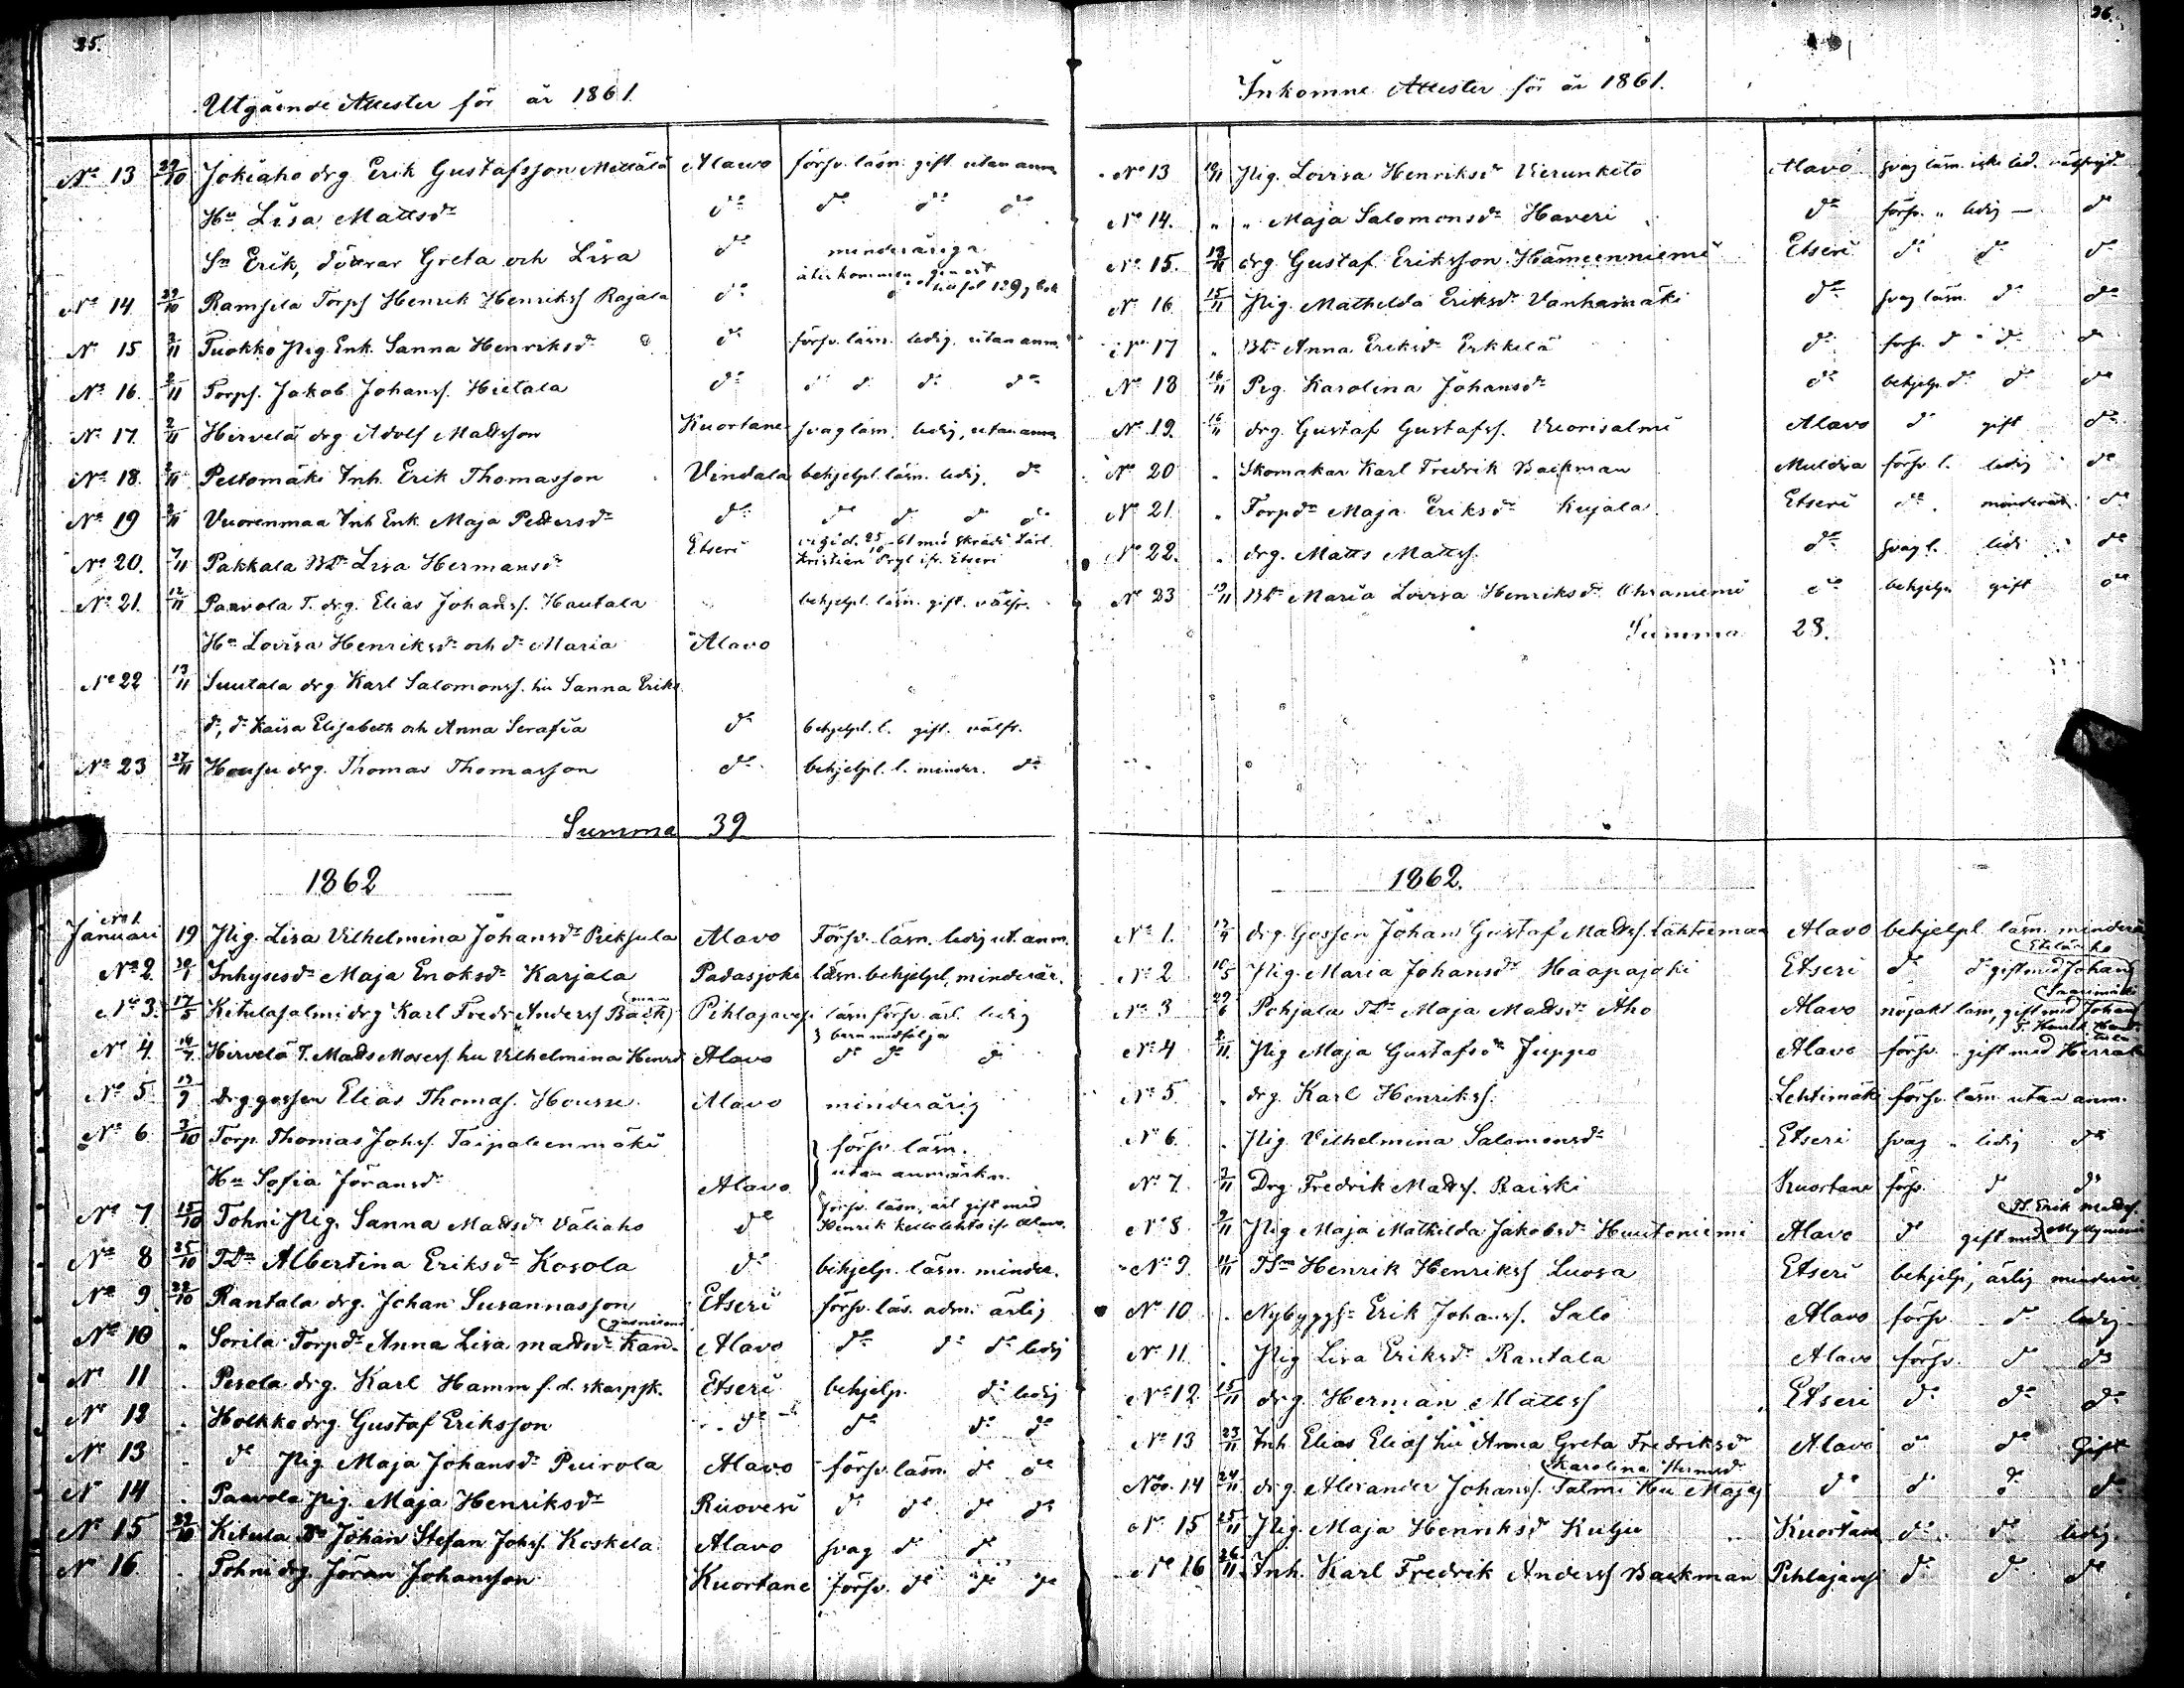 35.
Utgående Attester för år 1861.
No 13 29/10 Jokiaho drg Erik Gustafsson Mettälä Alawo försv. läsn. gift utan anm.
Hu Lisa Mattsdr do do do do
Sn Erik, döttrar Greta och Lisa do minderåriga
återkommen genast
No 14 29/10 Ramsila Torps Henrik Henrikss Rajala do
No 15 2/11 Tuokko Pig. Enk. Sanna Henriksdr do försv. läsn. ledig, utan anm.
No 16. 2/11 Torps. Jakob Johanss. Hietala do do do do do
No 17. 2/11 Hirvelä drg Adolf Mattsson Kuortane svag läsn. ledig, utan anm.
No 18. 2/11 Peltomäki Inh. Erik Thomasson Vindala behjelpl. läsn. ledig. do
No 19 2/11 Vuorenmaa Inh Enk Maja Pettersdr do do do do do
No 20. 7/11 Pakkala Bdr Lisa Hermansdr Etseri vigd. 25/10 -61 med Kristian ifr. Etseri
No 21. 12/11 Paavola T. drg. Elias Johanss. Hautala behjelpl. läsn. gift. välfr.
Hu Lovisa Henriksdr och dr Maria Alavo
No 22 13/11 Suutala drg Karl Salomonss. hu Sanna Eriks
dr, dr Kaisa Elisabeth och Anna Serafia do behjelpl. l. gift. välfr.
No 23 27/11 Housu drg. Thomas Thomasson do behjelpl. l. minder. do
Summa 39
1862
No 1.
Januari 19 Pig. Lisa Vilhelmina Johansdr Piksula Alavo Försv. läsn. ledig ut. anm.
No 2. 30/1 Inhysesdr Maja Enoksdr Karjala Padasjoki läsn. behjelpl, minderår.
No 3. 17/5 Kitulasalmi drg Karl Fredr Anderss Back(man Pihlajavesi läsn försv. ärl. ledig
barn medfölja
No 4. 14/7 Hirvelä T. Matts Moses. hu Vilhelmina Henrd Alavo do do do
No 5. 19/9 drg gossen Elias Thomas. Housu Alavo minderårig
No 6. 3/10 Torp. Thomas Johss. Taipaleenmäki försv. läsn.
Hu Sofia Jöransdr Alavo utan anmärkn.
No 7 15/10 Tohni Pig. Sanna Mattsdr Väliaho do försv. läsn., ärl gift med
Henrik Kellolehto ifr Alavo.
No 8 25/10 Tdr Albertina Eriksdr Kosola do behjelp. läsn. minder.
No 9 22/10 Rantala drg. Johan Susannasson Etseri försv. läs. adm. ärlig
No 10 " Sorila Torpdr Anna Lisa Mattsdr Kan- Alavo do do do ledig
No 11 . Pesola drg. Karl Hamm f.d. skarpsk. Etseri behjelp. do ledig
No 12 . Holkko drg. Gustaf Eriksson do do do do
No 13 . do Pig Maja Johansdr Puirola Alavo försv. läsn. do do
No 14 . Paavola Pig. Maja Henriksdr Ruovesi do do do do
No 15 29/10 Kitula Johan Stefan Johss. Koskela Alavo svag do do
No 16. . Tohni drg. Jöran Johansson Kuortane försv. do do do
36.
Inkomne Attester för år 1861.
No 13 10/11 Pig. Lovisa Henriksdr Vierunketo Alavo svag läsn. icke led. välfrejd.
No 14. " " Maja Salomonsdr Haveri do försv. " ledig — do
No 15. 12/11 drg Gustaf Eriksson Hämeenniemi Etseri do do do
No 16 15/11 Pig. Mathilda Eriksdr Vanhamäki do svag läsn. do do
No 17 " Bdr Anna Eriksdr Erkkilä do försv. do do do
No 18 16/11 Pig. Karolina Johansdr do behjelp. do do do
No 19. 16/11 drg. Gustaf Gustafss. Vuorisalmi Alavo do gift do
No 20 " Skomakar Karl Fredrik Backman Muldia försv. l. ledig do
No 21 " Torpdr Maja Eriksdr Kujala Etseri do minderår. do
No 22. " drg. Matts Mattss. do svag l. ledi do
No 23 19/11 Bdr Maria Lovisa Henriksdr Ohraniemi do behjelp. gift do
Summa 28.
1862.
No 1. 12/4 drg. Gossen Johan Gustaf Mattss. Lähteenmaa Alavo behjelpl. läsn. minderår
No 2 10/5 Pig. Maria Johansdr Haapajoki Etseri do do gift med Johan
No 3 29/6 Pohjala Tdr Maja Mattsdr Aho Alavo nöjakt läsn, gift med Johan
No 4 2/11 Pig Maja Gustafsdr Juppo Alavo försv. gift med
No 5. " drg. Karl Henrikss. Lehtimäki försv. läsn. utan anm.
No 6. " Pig. Vilhelmina Salomonsdr Etseri svag " ledig do
No 7. 2/11 Drg. Fredrik Mattss. Raiski Kuortane försv. do do
No 8 9/11 Pig Maja Mathilda Jakobsdr Huutoniemi Alavo do gift med Erik Mattss. Myllyniemi
No 9 11/11 Henrik Henrikss Luosa Etseri behjelp, ärlig minderår
No 10 . Nybyggs. Erik Johanss. Salo Alavo försv. do ledig
No 11. . Pig Lisa Eriksdr Rantala Alavo försv. do do
No 12. 15/11 drg. Herman Mattss Etseri do do do
No 13 23/11 Inh Elias Elias hu Anna Greta Fredriksdr Alavo do do Gift
No 14 24/11 drg. Alexander Johanss. Salmi Hu Maja Karolina do do do do
No 15 25/11 Pig. Maja Henriksd Kulju Kuortane do do ledig.
No 16 26/11 Inh. Karl Fredrik Anderss Backman Pihlajavesi do do do